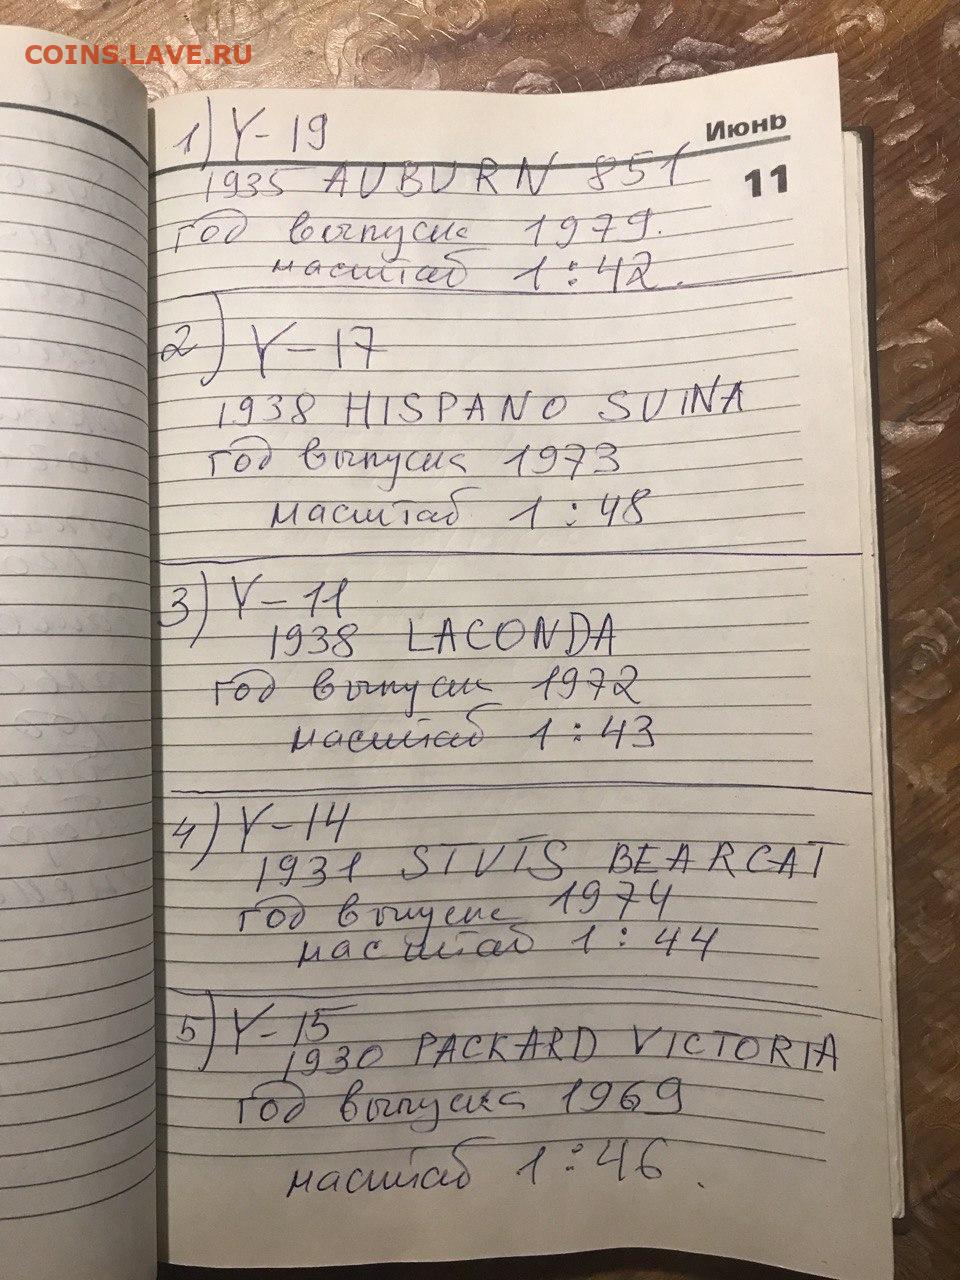 COINS.LAVE.RU
Июнь
11
1) Y-19
1935 AUBURN 851
год выпуска 1979.
масштаб 1:42.
2) Y-17
1938 HISPANO SUINA
год выпуска 1973
масштаб 1:48
3) Y-11
1938 LACONDA
год выпуска 1972
масштаб 1:43
4) Y-14
1931 STVTS BEARCAT
год выпуска 1974
масштаб 1:44
5) Y-15
1930 PACKARD VICTORIA
год выпуска 1969
масштаб 1:46.